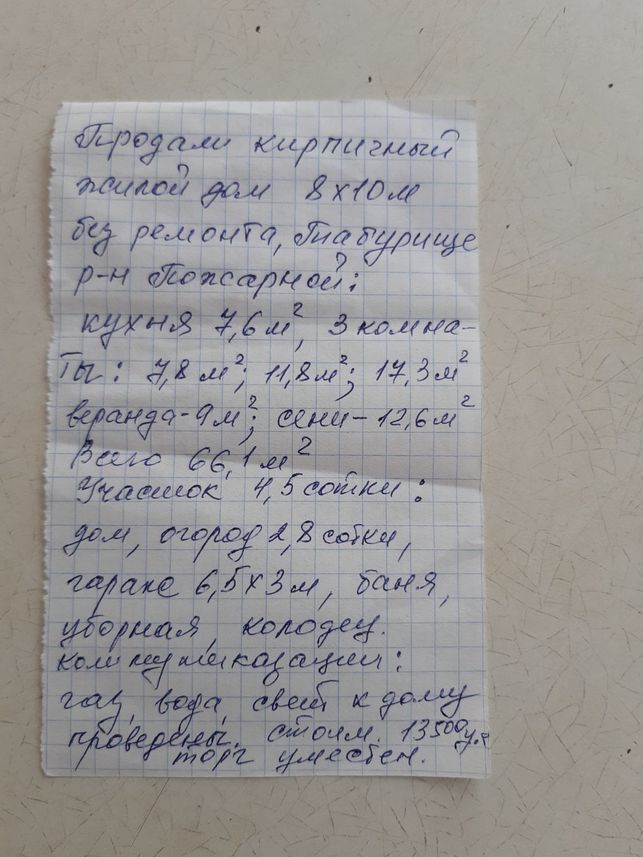 Продам кирпичный
жилой дом 8х10м
без ремонта, Табурище
р-н Пожарной:
кухня 7,6м², 3 комна-
ты: 7,8м²; 11,8м²; 17,3м²
веранда-9м²; сени-12,6м²
Всего 66,1м²
Участок 4,5сотки:
дом, огород 2,8сотки,
гараж 6,5х3м, баня,
уборная, колодец.
коммуникации:
газ, вода, свет к дому
проведены. стоим. 13500у.е
торг уместен.